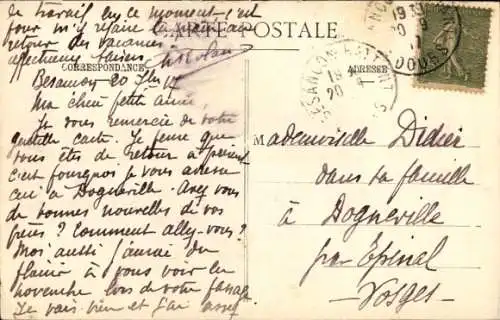 de travail en ce moment c'est
pour m'y refaire
retour des vacances
affectueux baisers
CARTE POSTALE
CORRESPONDANCE
ADRESSE
BESANÇON
DOUBS
19
20
Besançon 20
Ma chère petite amie,
Je vous remercie de votre
gentille carte. Je pense que
vous êtes de retour à présent
c'est pourquoi je vous adresse
ceci à Dogneville. Avez vous
de bonnes nouvelles de vos
frères ? Comment allez-vous ?
Moi aussi j'aurai du
plaisir à vous voir en
novembre lors de votre passage
Je vais bien et j'ai assez
Mademoiselle Didier
dans sa famille
à Dogneville
par Epinal
- Vosges -